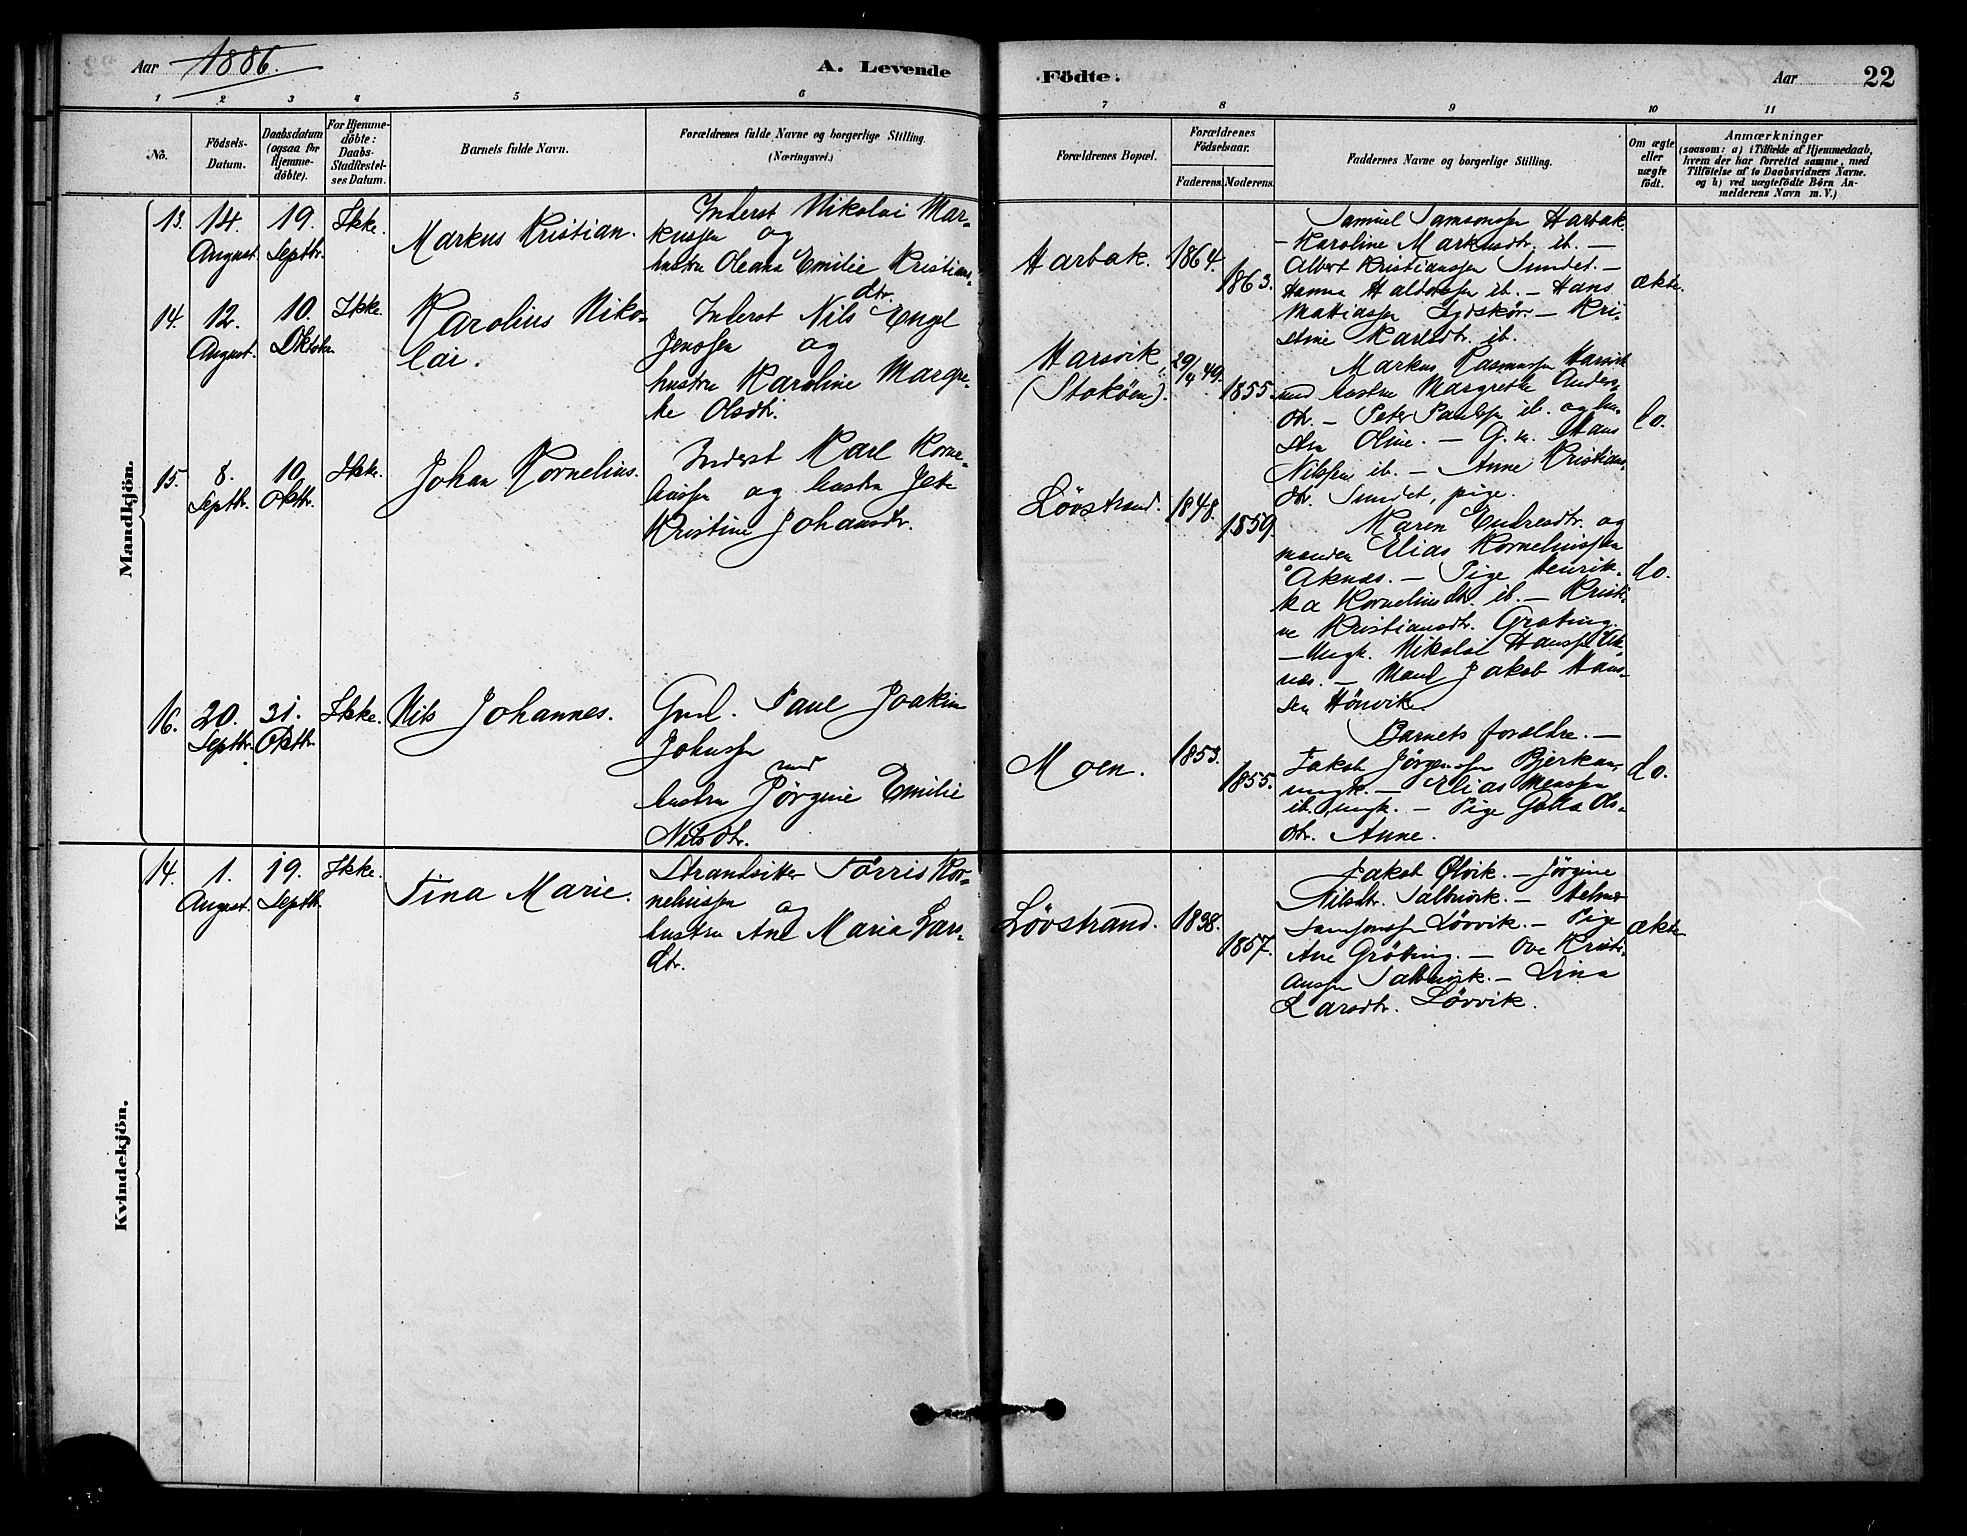 Aar 1886. A. Levende Födte. Aar 22
1 2 3 4 5 6 7 8 9 10 11
No.
Födsels-
Datum.
Daabsdatum
(ogsaa för
Hjemme-
döbte).
For Hjemme-
döbte:
Daabs-
Stadfæstel-
ses Datum.
Barnets fulde Navn.
Forældrenes fulde Navne og borgerlige Stilling.
(Næringsvei.)
Forældrenes Bopæl.
Forældrenes
Födselsaar.
Faderens. Moderens.
Faddernes Navne og borgerlige Stilling.
Om ægte
eller
uægte
födt.
Anmærkninger
(saasom: a) i Tilfælde af Hjemmedaab,
hvem der har forrettet samme, med
Tilföielse af to Daabsvidners Navne.
og b) ved uægtefödte Börn An-
melderens Navn m. V.)
Mandkjön.
13. 14. August. 19. Septbr. Ikke.
Markus Kristian.
Inderst Nikolai Mar-
kussen og
hustru Oleana Emilie Kristians-
dtr.
Harbak. 1864. 1863.
Samuel Samsonsen Harbak
- Karoline Markusdtr. ib. -
Albert Kristianssen Sundet. -
Hanna Haldorsen ib. - Hans
Mathiassen - Kri-
stine Karlsdtr. ib.
ækte.
14. 12. August. 10. Oktobr. Ikke.
Karolius Niko-
lai.
Inderst Nils Engel
Jenssen og
hustru Karoline Margre-
te Olsdtr.
Harsvik
(Stokøen).
29/4 49. 1855.
Markus Rasmussen Harsvik
med hustru Margrethe Anders-
dtr. - Peter Paulsen ib. og hu-
stru Oline. - G. m. Hans
Nilssen ib. - Anne Kristians-
dtr. Sundet, pige.
do.
15. 8. Septbr. 10. Oktbr. Ikke.
Johan Kornelius.
Inderst Karl Korne-
liussen og hustru Jete
Kristine Johansdtr.
Lövstrand. 1848. 1859.
Maren Endresdtr. og
manden Elias Korneliussen
Aknæs. - Pige Henrik-
ka Korneliusdtr. ib. - Kristi-
ne Kristiansdtr. Gröting.
- Ungk. Nikolai Hanssen Ak-
næs. - Mand Jakob Hans-
sen Hönvik.
do.
16. 20. Septbr. 31. Oktbr. Ikke.
Nils Johannes.
Gmd. Paul Joakim
Johnssen
med
hustru Jörgine Emilie
Nilsdtr.
Moen. 1853. 1855.
Barnets forældre. -
Jakob Jörgenssen Bjerkan,
ungk. - Elias Monssen
ib. ungk. - Pige Golla Ols-
dtr. Anne.
do.
Kvindekjön.
14. 1. August. 19. Septb. Ikke.
Tina Marie.
Strandsitter Törris Kor-
neliussen og
hustru Ane Maria Lars-
dtr.
Lövstrand. 1838. 1857.
Jakob Ölvik. - Jörgine
Nilsdtr. Talbuvik. - Helmer
Samsonssen Lövvik. - Pige
Ane Gröting. - Ove Kristi-
anssen Talbuvik. - Lina
Larsdtr. Lövvik.
ækte